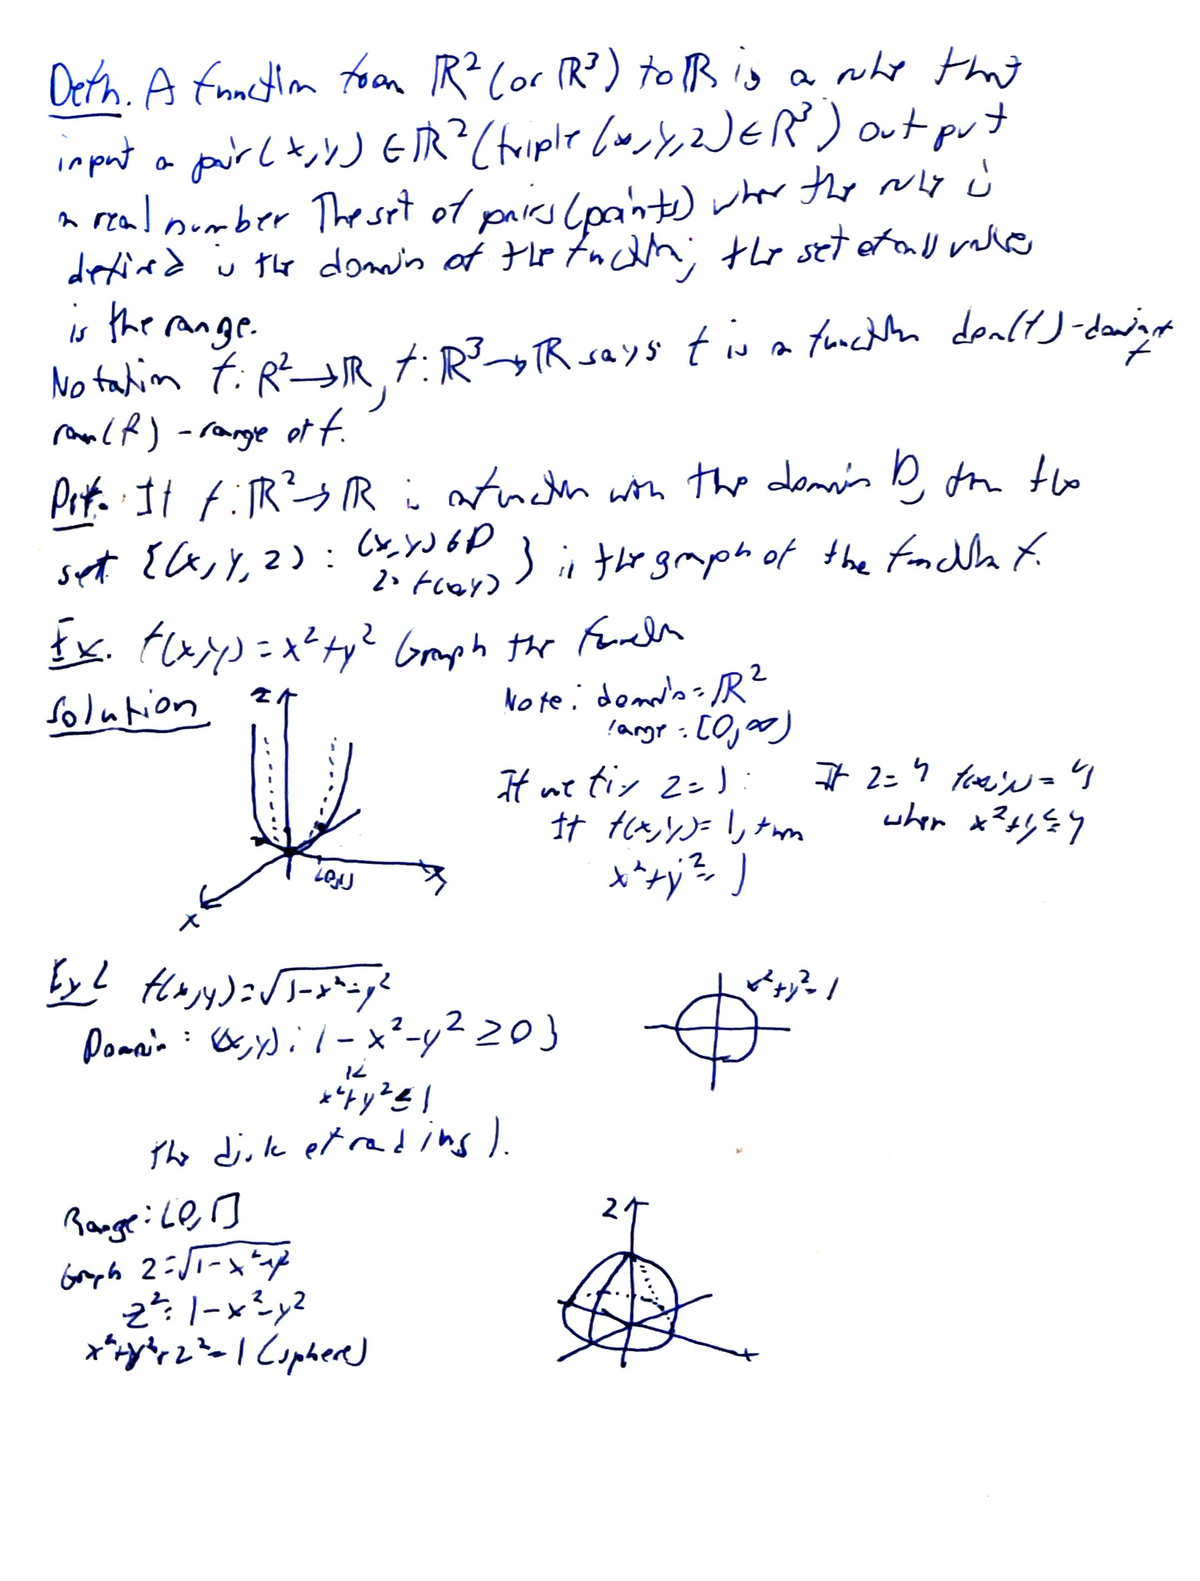 Defn. A function from ℝ² (or ℝ³) to ℝ is a rule that
input a pair (x,y) ∈ ℝ² (triple (x,y,z) ∈ ℝ³) output
a real number The set of pairs (points) where the rule is
defined is the domain of the function; the set of all values
is the range.
Notation f: ℝ² → ℝ, f: ℝ³ → ℝ says f is a function dom(f) - domain of f
ran(f) - range of f.
Def. If f: ℝ² → ℝ is a function with the domain D, then the
set {(x, y, z) : (x,y) ∈ D
z = f(x,y) } is the graph of the function f.
Ex. f(x,y) = x² + y² Graph the function
Solution
z
Note: domain = ℝ²
range = [0, ∞)
If we fix z = 1:
If f(x,y) = 1, then
x² + y² = 1
If z = 4 f(x,y) = 4
when x² + y² = 4
x
Ex 2 f(x,y) = √1-x²-y²
x² + y² = 1
Domain: {(x,y): 1 - x² - y² ≥ 0}
x² + y² ≤ 1
the disk of radius 1.
Range: [0, 1]
z
Graph z = √1-x²-y²
z² = 1 - x² - y²
x² + y² + z² = 1 (sphere)